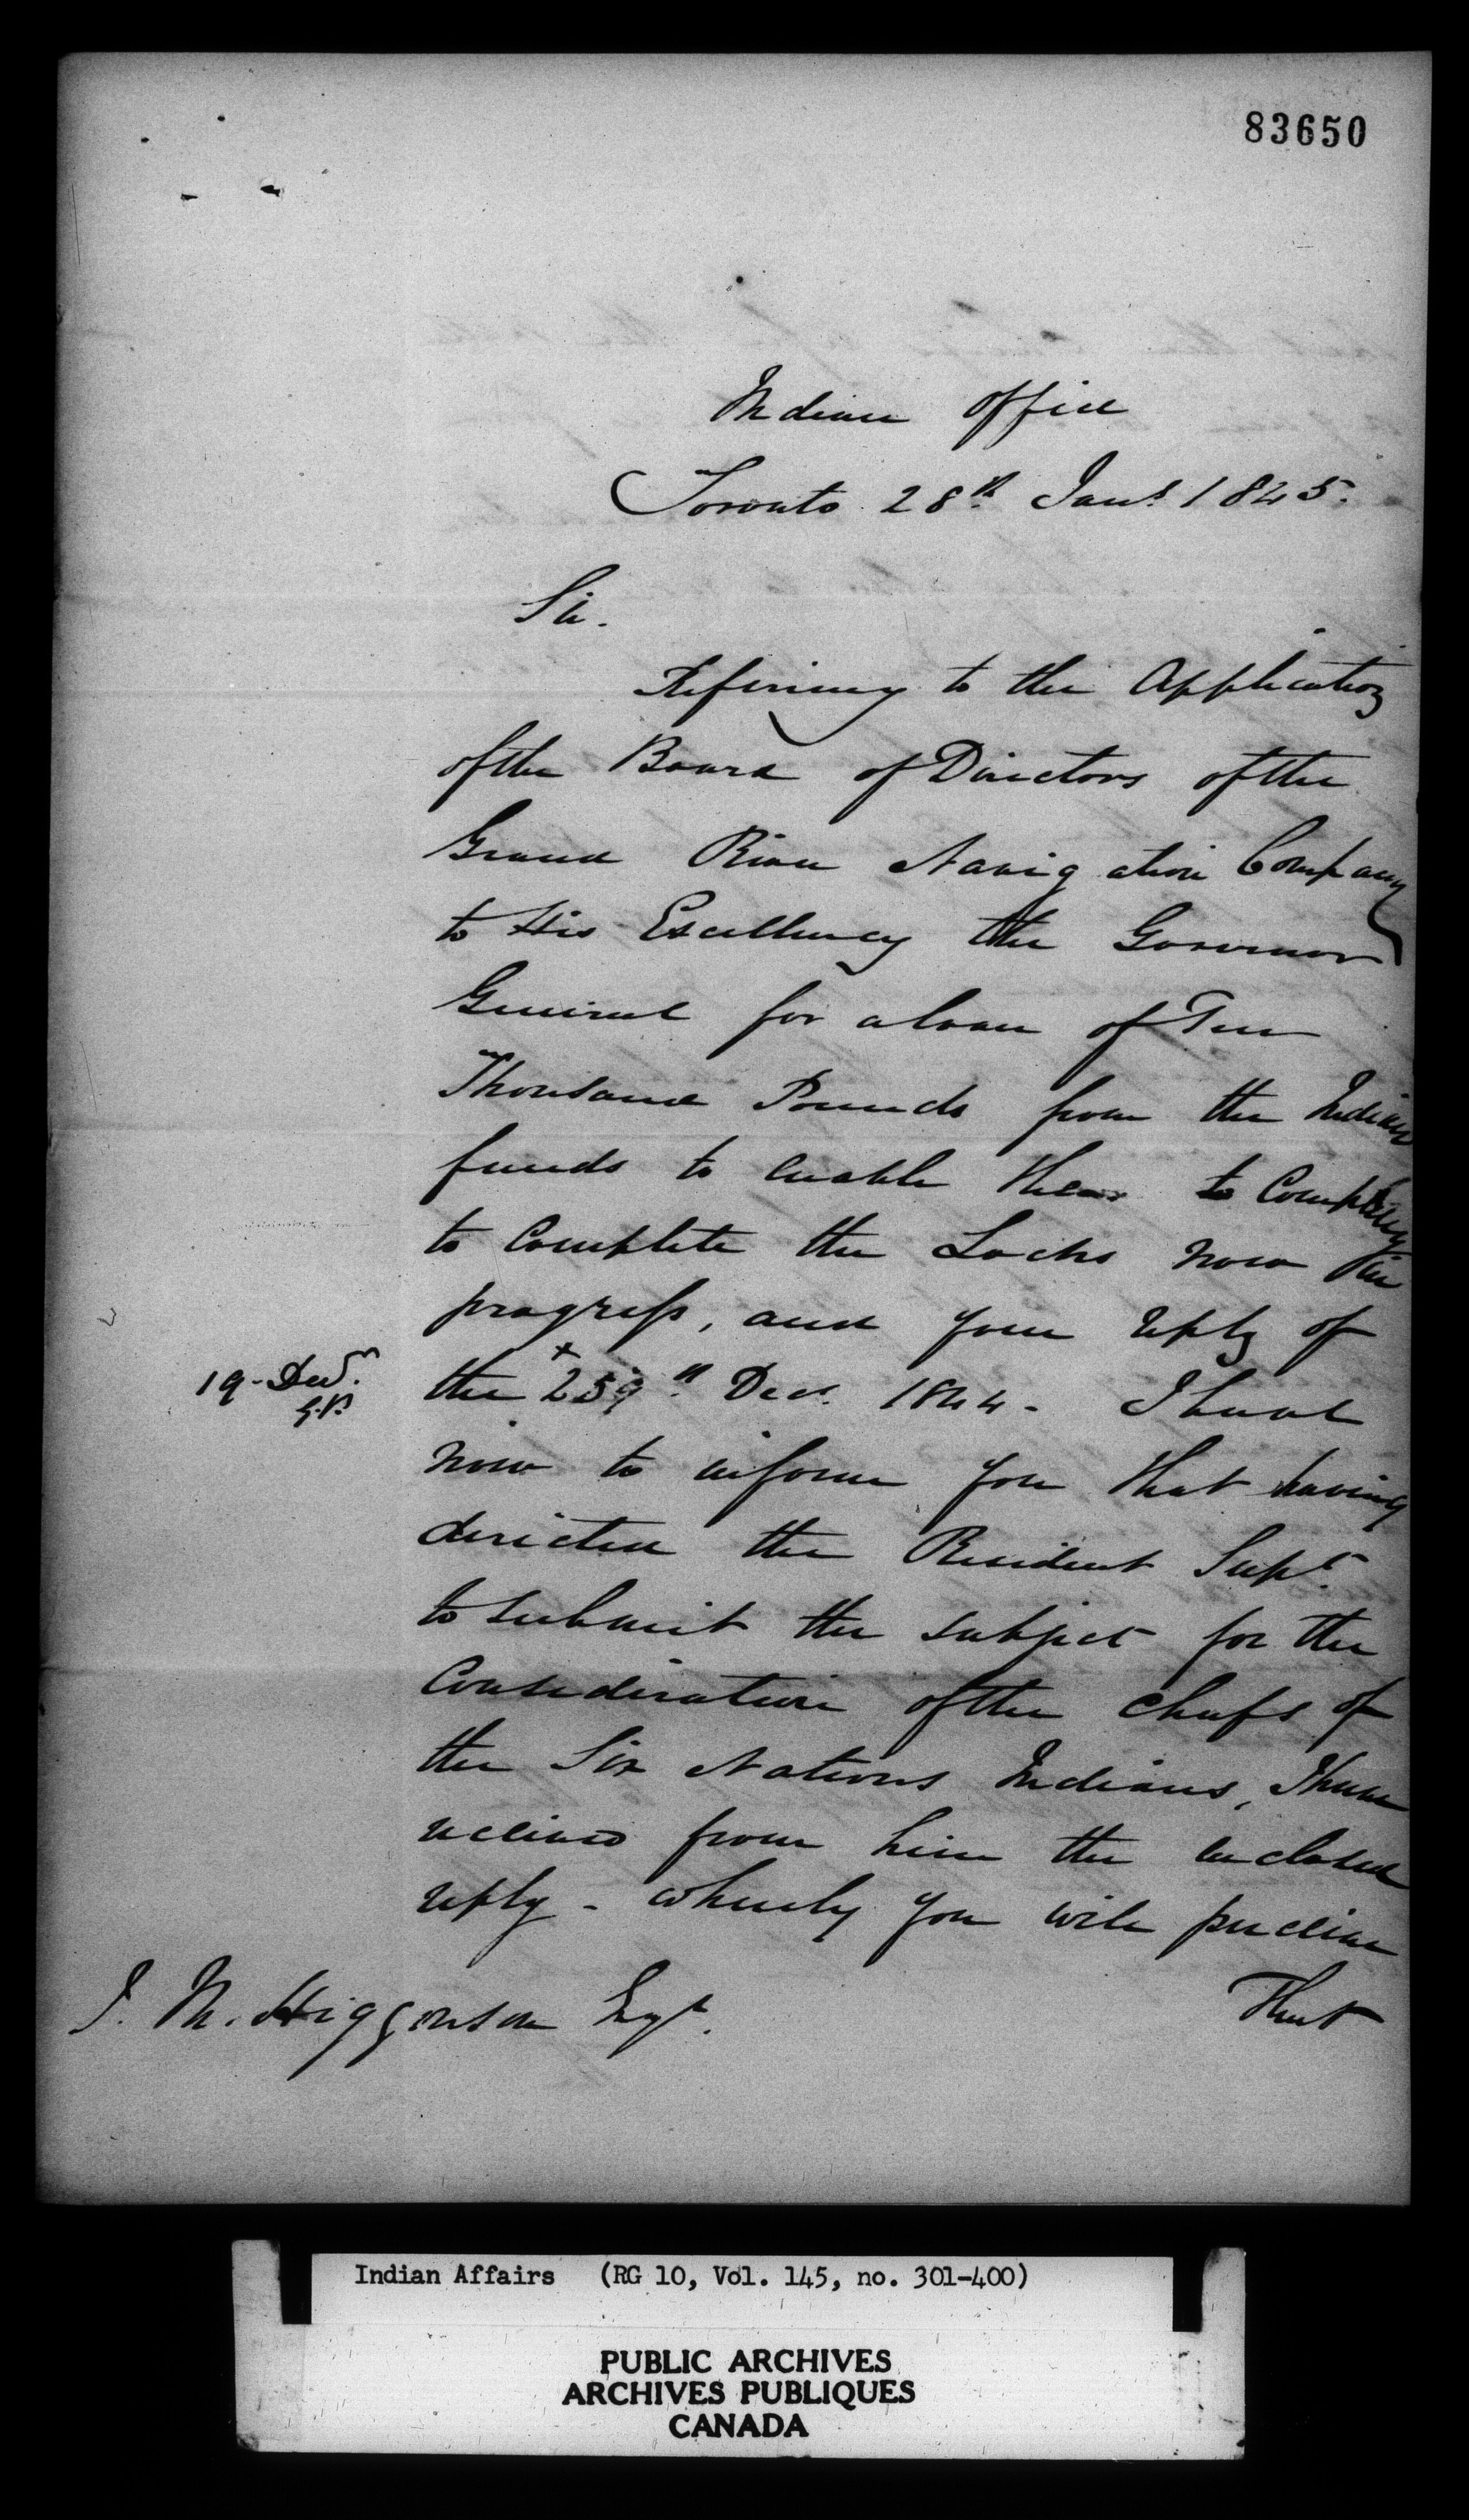 83650
Indian Office
Toronto 28th Jany 1845.
Sir.
Referring to the Application
of the Board of Directors of the
Grand River Navigation Company
to His Excellency the Governor
General for a loan of Ten
Thousand Pounds from the Indian
funds to enable them to Company
to complete the Locks now in
progress, and your reply of
the + 259th Decr 1844. I have
19 Decr.
G.V.
now to inform you that having
directed the Resident Supt.
to submit the subject for the
Consideration of the Chiefs of
the Six Nations Indians, I have
received from him the enclosed
reply - whereby you will perceive
That
J. M. Higginson Esqr.
Indian Affairs (RG 10, Vol. 145, no. 301-400)
PUBLIC ARCHIVES
ARCHIVES PUBLIQUES
CANADA